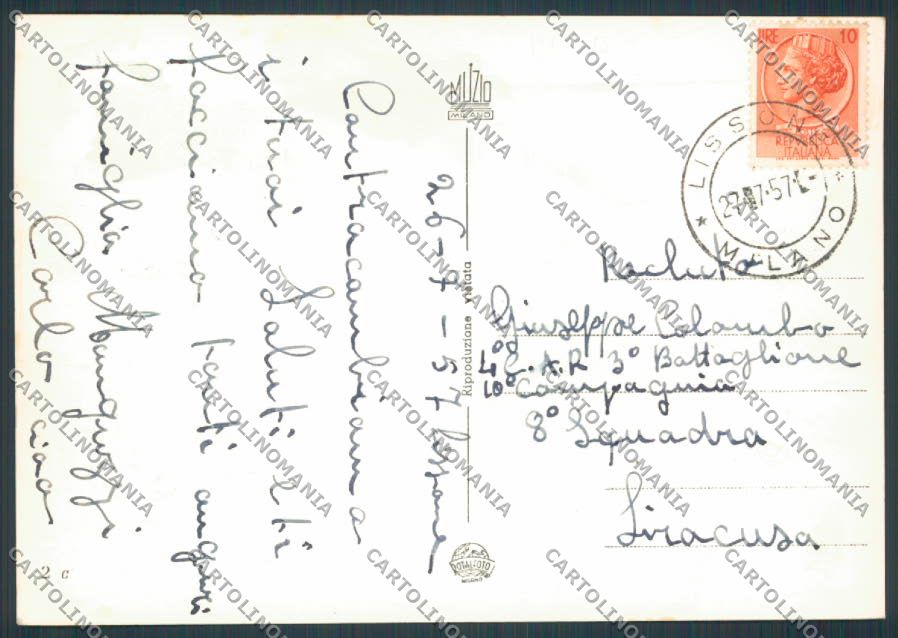 26-7-57 Lissone
Contracambiamo
i tuoi saluti e ti
facciamo tanti auguri
famiglia
Carlo ciao
MUZIO
MILANO
Riproduzione vietata
2 c
ROTALFOTO
MILANO
LIRE 10
REPUBBLICA
ITALIANA
LISSONE
* MILANO *
27.7.57
Recluta
Giuseppe Colombo
4° C.A.R 3° Battaglione
10° Compagnia
8° Squadra
Siracusa
CARTOLINOMANIA